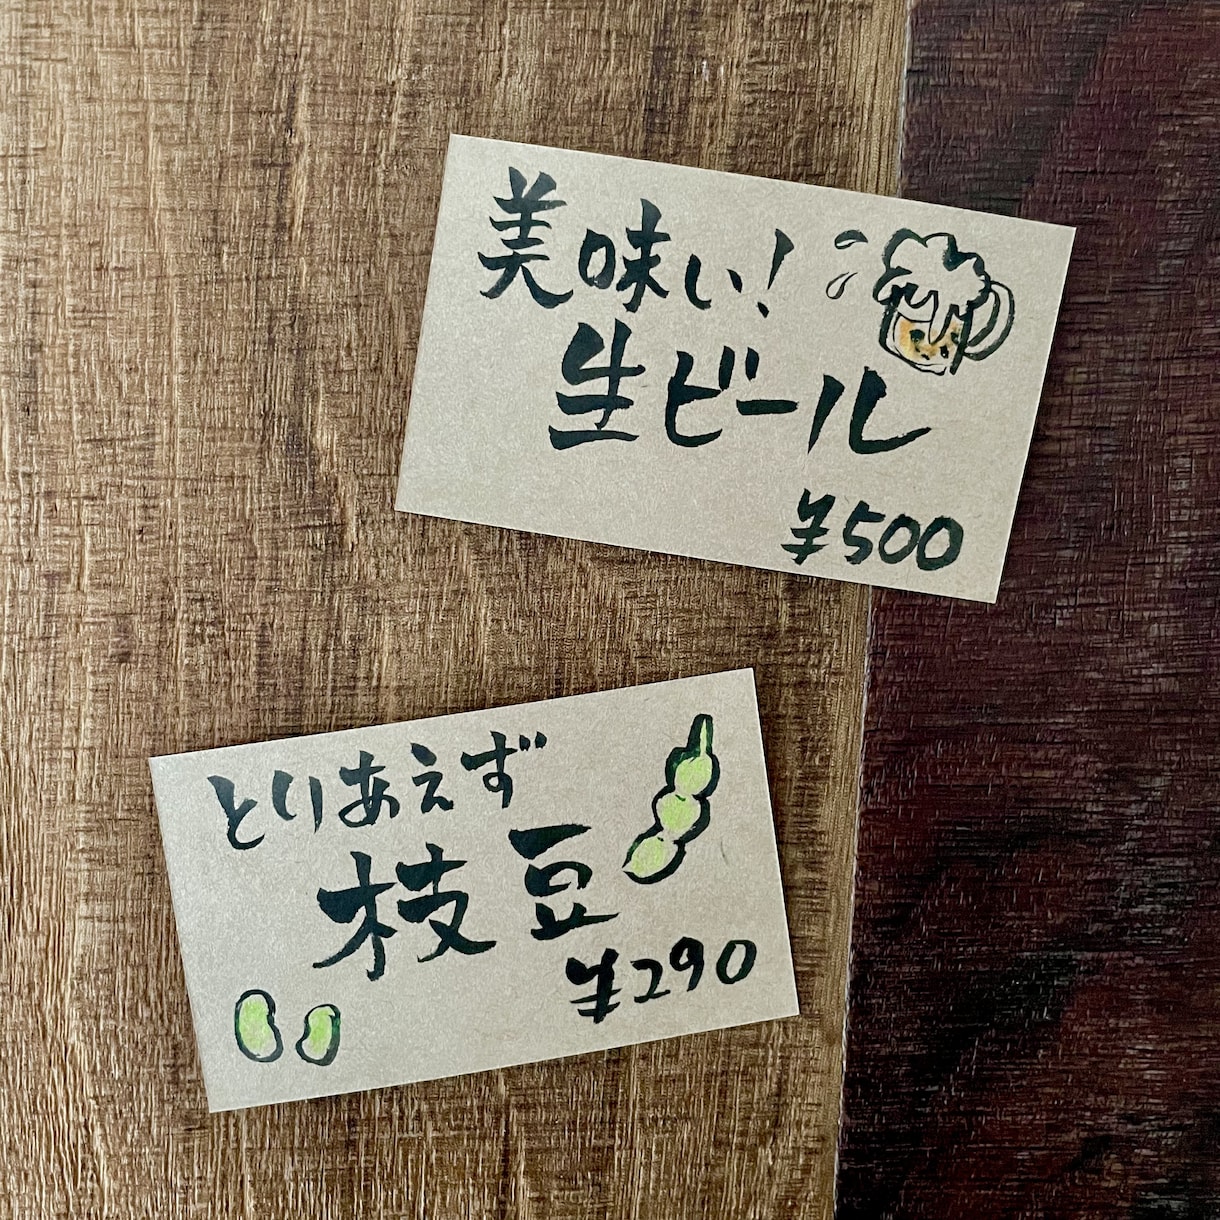 美味い!
生ビール
¥500
とりあえず
枝豆
¥290